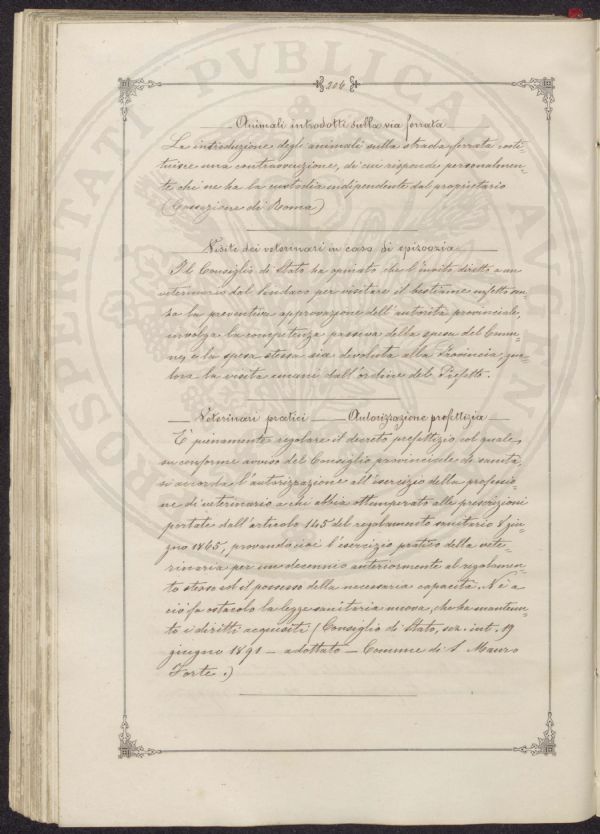 PROSPERITATI PVBLICAE AVGENDAE
206
Animali introdotti sulla via ferrata
La introduzione degli animali sulla strada ferrata costi=
tuisce una contravvenzione, di cui risponde personalmen=
te chi ne ha la custodia indipendente dal proprietario
(Cassazione di Roma)
Visite dei veterinari in caso di epizoozia
Il Consiglio di Stato ha opinato che l'invito diretto a un
veterinario dal Sindaco per visitare il bestiame infetto sen=
za la preventiva approvazione dell'autorità provinciale,
involga la competenza passiva della spesa del Comu=
ne, e la spesa stessa sia devoluta alla Provincia, qua=
lora la visita emani dall'ordine del Prefetto.
Veterinari pratici — Autorizzazione prefettizia
È pienamente regolare il decreto prefettizio col quale,
su conforme avviso del Consiglio provinciale di sanità,
si accorda l'autorizzazione all'esercizio della professio=
ne di veterinario a chi abbia ottemperato alle prescrizioni
portate dall'articolo 145 del regolamento sanitario 8 giu=
gno 1865, provando cioè l'esercizio pratico della vete=
rinaria per un decennio anteriormente al regolamen=
to stesso ed il possesso della necessaria capacità. Nè a
ciò fa ostacolo la legge sanitaria nuova, che ha mantenu=
to i diritti acquisiti (Consiglio di Stato, sez. int. 19
giugno 1891 — adottato — Comune di S. Mauro
Forte.)